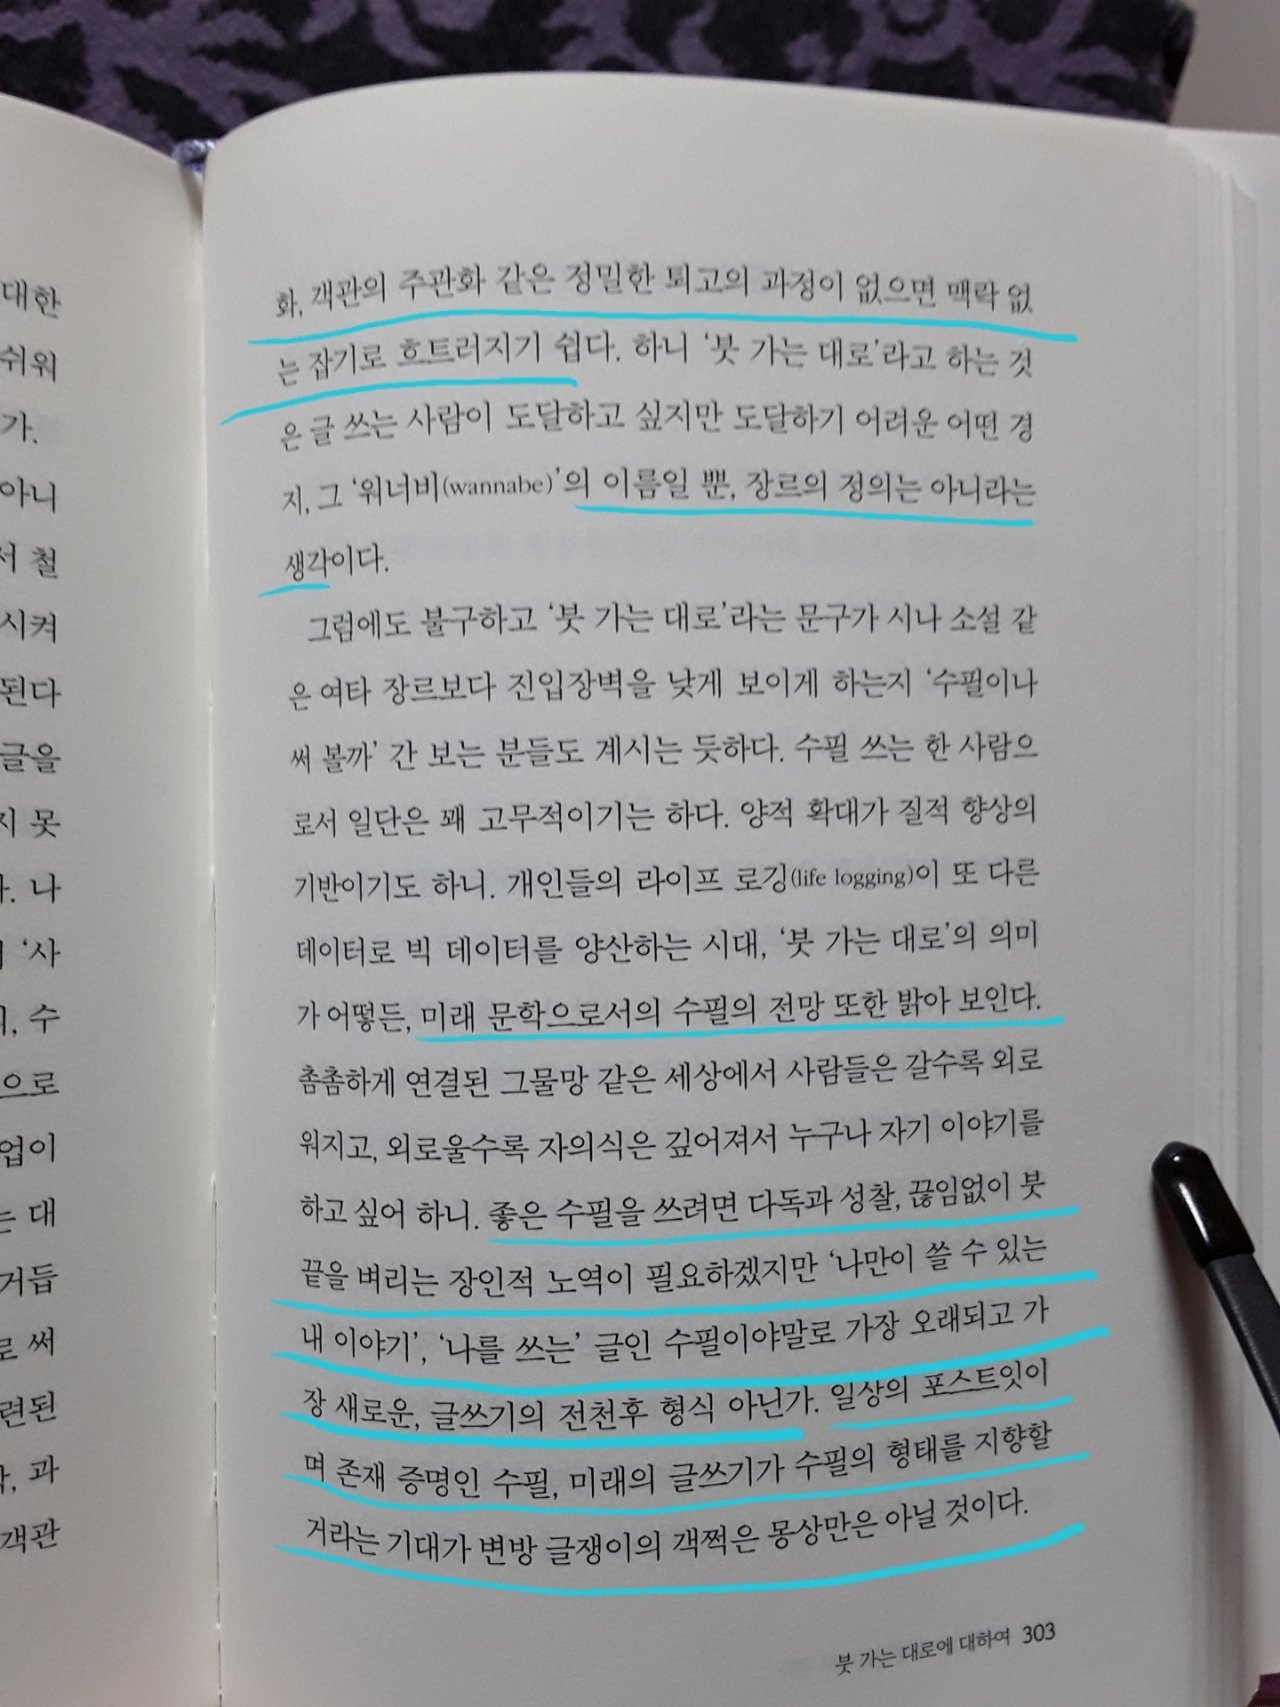 대한
쉬워
가.
아니
서 철
시켜
된다
글을
지 못
나
'사
수
으로
업이
는 대
거듭
로 써
련된
과
객관
화, 객관의 주관화 같은 정밀한 퇴고의 과정이 없으면 맥락 없
는 잡기로 흐트러지기 쉽다. 하니 '붓 가는 대로'라고 하는 것
은 글 쓰는 사람이 도달하고 싶지만 도달하기 어려운 어떤 경
지, 그 '워너비(wannabe)'의 이름일 뿐, 장르의 정의는 아니라는
생각이다.
그럼에도 불구하고 '붓 가는 대로'라는 문구가 시나 소설 같
은 여타 장르보다 진입장벽을 낮게 보이게 하는지 '수필이나
써 볼까' 간 보는 분들도 계시는 듯하다. 수필 쓰는 한 사람으
로서 일단은 꽤 고무적이기는 하다. 양적 확대가 질적 향상의
기반이기도 하니. 개인들의 라이프 로깅(life logging)이 또 다른
데이터로 빅 데이터를 양산하는 시대, '붓 가는 대로'의 의미
가 어떻든, 미래 문학으로서의 수필의 전망 또한 밝아 보인다.
촘촘하게 연결된 그물망 같은 세상에서 사람들은 갈수록 외로
워지고, 외로울수록 자의식은 깊어져서 누구나 자기 이야기를
하고 싶어 하니. 좋은 수필을 쓰려면 다독과 성찰, 끊임없이 붓
끝을 벼리는 장인적 노역이 필요하겠지만 '나만이 쓸 수 있는
내 이야기', '나를 쓰는' 글인 수필이야말로 가장 오래되고 가
장 새로운, 글쓰기의 전천후 형식 아닌가. 일상의 포스트잇이
며 존재 증명인 수필, 미래의 글쓰기가 수필의 형태를 지향할
거라는 기대가 변방 글쟁이의 객쩍은 몽상만은 아닐 것이다.
붓 가는 대로에 대하여 303